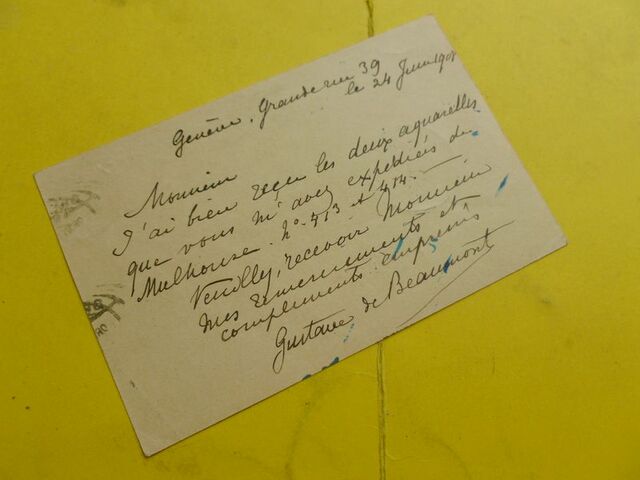 Genève, Grande rue 39
le 24 Juin
Monsieur
J'ai bien reçu les deux aquarelles
que vous m'avez expédiés de
Mulhouse. No. 413 et 414.
Veuillez, recevoir Monsieur
mes remerciements et
compliments empressés
Gustave de Beaumont